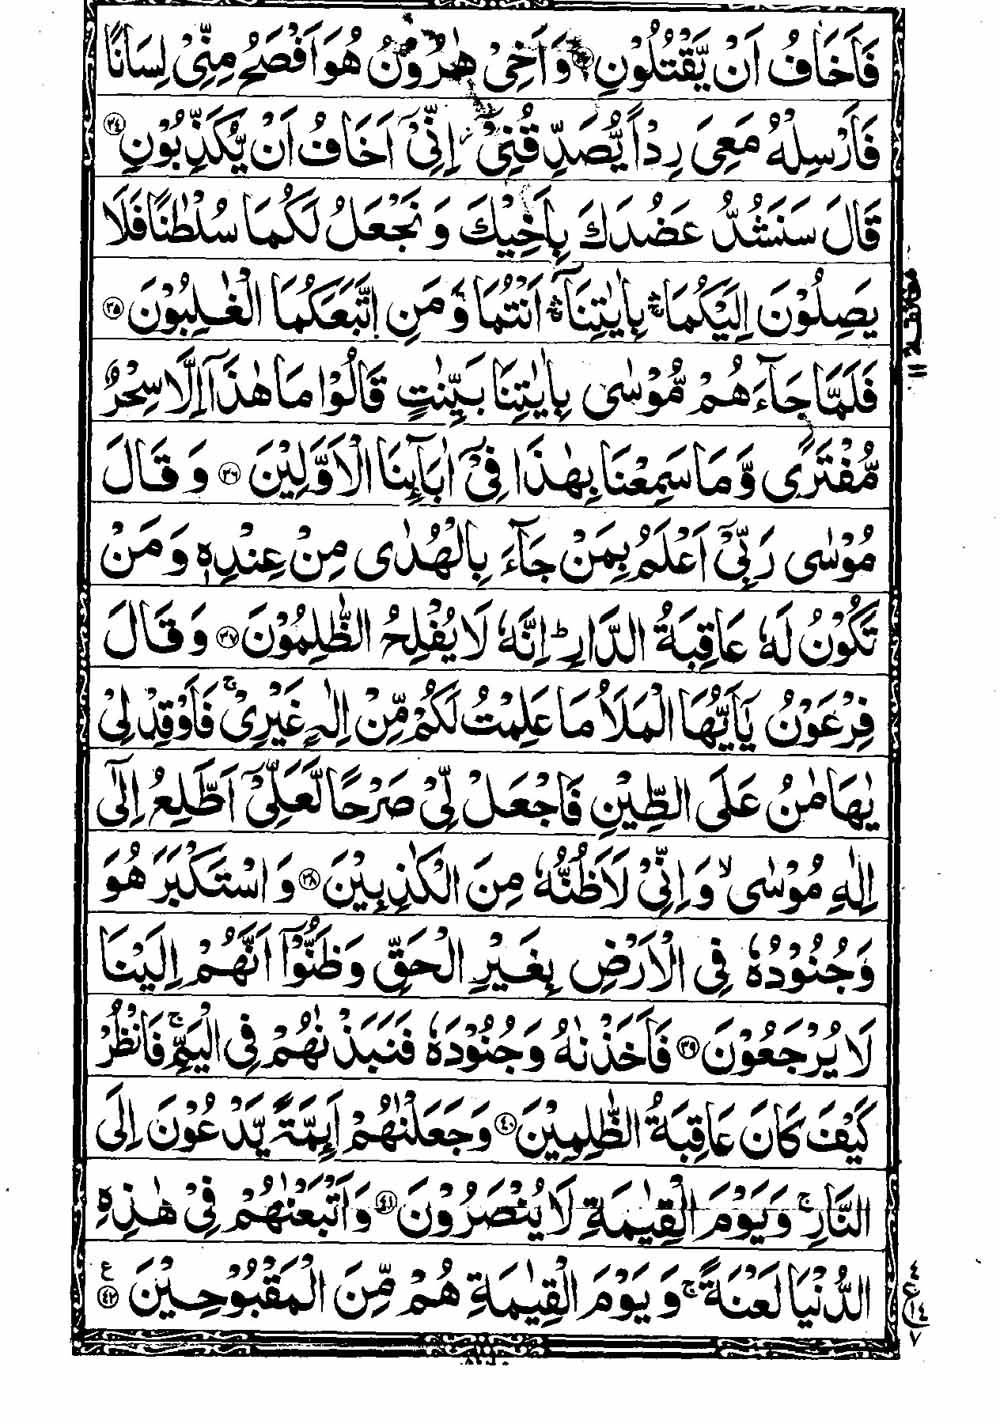 فَاَخَافُ اَنْ يَّقْتُلُوْنِ ۝٣٣ وَاَخِىْ هٰرُوْنُ هُوَ اَفْصَحُ مِنِّىْ لِسَانًا
فَاَرْسِلْهُ مَعِىَ رِدْاً يُّصَدِّقُنِىْۤ ۫ اِنِّىْۤ اَخَافُ اَنْ يُّكَذِّبُوْنِ ۝٣٤
قَالَ سَنَشُدُّ عَضُدَكَ بِاَخِيْكَ وَ نَجْعَلُ لَكُمَا سُلْطٰنًا فَلَا
يَصِلُوْنَ اِلَيْكُمَا ۛۚ بِاٰيٰتِنَاۤ ۛۚ اَنْتُمَا وَ مَنِ اتَّبَعَكُمَا الْغٰلِبُوْنَ ۝٣٥
فَلَمَّا جَآءَهُمْ مُّوْسٰى بِاٰيٰتِنَا بَيِّنٰتٍ قَالُوْا مَا هٰذَاۤ اِلَّا سِحْرٌ
مُّفْتَرًى وَّ مَا سَمِعْنَا بِهٰذَا فِىْۤ اٰبَآئِنَا الْاَوَّلِيْنَ ۝٣٦ وَ قَالَ
مُوْسٰى رَبِّىْۤ اَعْلَمُ بِمَنْ جَآءَ بِالْهُدٰى مِنْ عِنْدِهٖ وَ مَنْ
تَكُوْنُ لَهٗ عَاقِبَةُ الدَّارِ ؕ اِنَّهٗ لَا يُفْلِحُ الظّٰلِمُوْنَ ۝٣٧ وَ قَالَ
فِرْعَوْنُ يٰۤاَيُّهَا الْمَلَاُ مَا عَلِمْتُ لَكُمْ مِّنْ اِلٰهٍ غَيْرِىْ ۚ فَاَوْقِدْ لِىْ
يٰهَامٰنُ عَلَى الطِّيْنِ فَاجْعَلْ لِّىْ صَرْحًا لَّعَلِّىْۤ اَطَّلِعُ اِلٰۤى
اِلٰهِ مُوْسٰى ۙ وَ اِنِّىْ لَاَظُنُّهٗ مِنَ الْكٰذِبِيْنَ ۝٣٨ وَ اسْتَكْبَرَ هُوَ
وَ جُنُوْدُهٗ فِى الْاَرْضِ بِغَيْرِ الْحَقِّ وَ ظَنُّوْۤا اَنَّهُمْ اِلَيْنَا
لَا يُرْجَعُوْنَ ۝٣٩ فَاَخَذْنٰهُ وَ جُنُوْدَهٗ فَنَبَذْنٰهُمْ فِى الْيَمِّ ۚ فَانْظُرْ
كَيْفَ كَانَ عَاقِبَةُ الظّٰلِمِيْنَ ۝٤٠ وَ جَعَلْنٰهُمْ اَئِمَّةً يَّدْعُوْنَ اِلَى
النَّارِ ۚ وَ يَوْمَ الْقِيٰمَةِ لَا يُنْصَرُوْنَ ۝٤١ وَ اَتْبَعْنٰهُمْ فِىْ هٰذِهِ
الدُّنْيَا لَعْنَةً ۚ وَ يَوْمَ الْقِيٰمَةِ هُمْ مِّنَ الْمَقْبُوْحِيْنَ ۝٤٢ ع